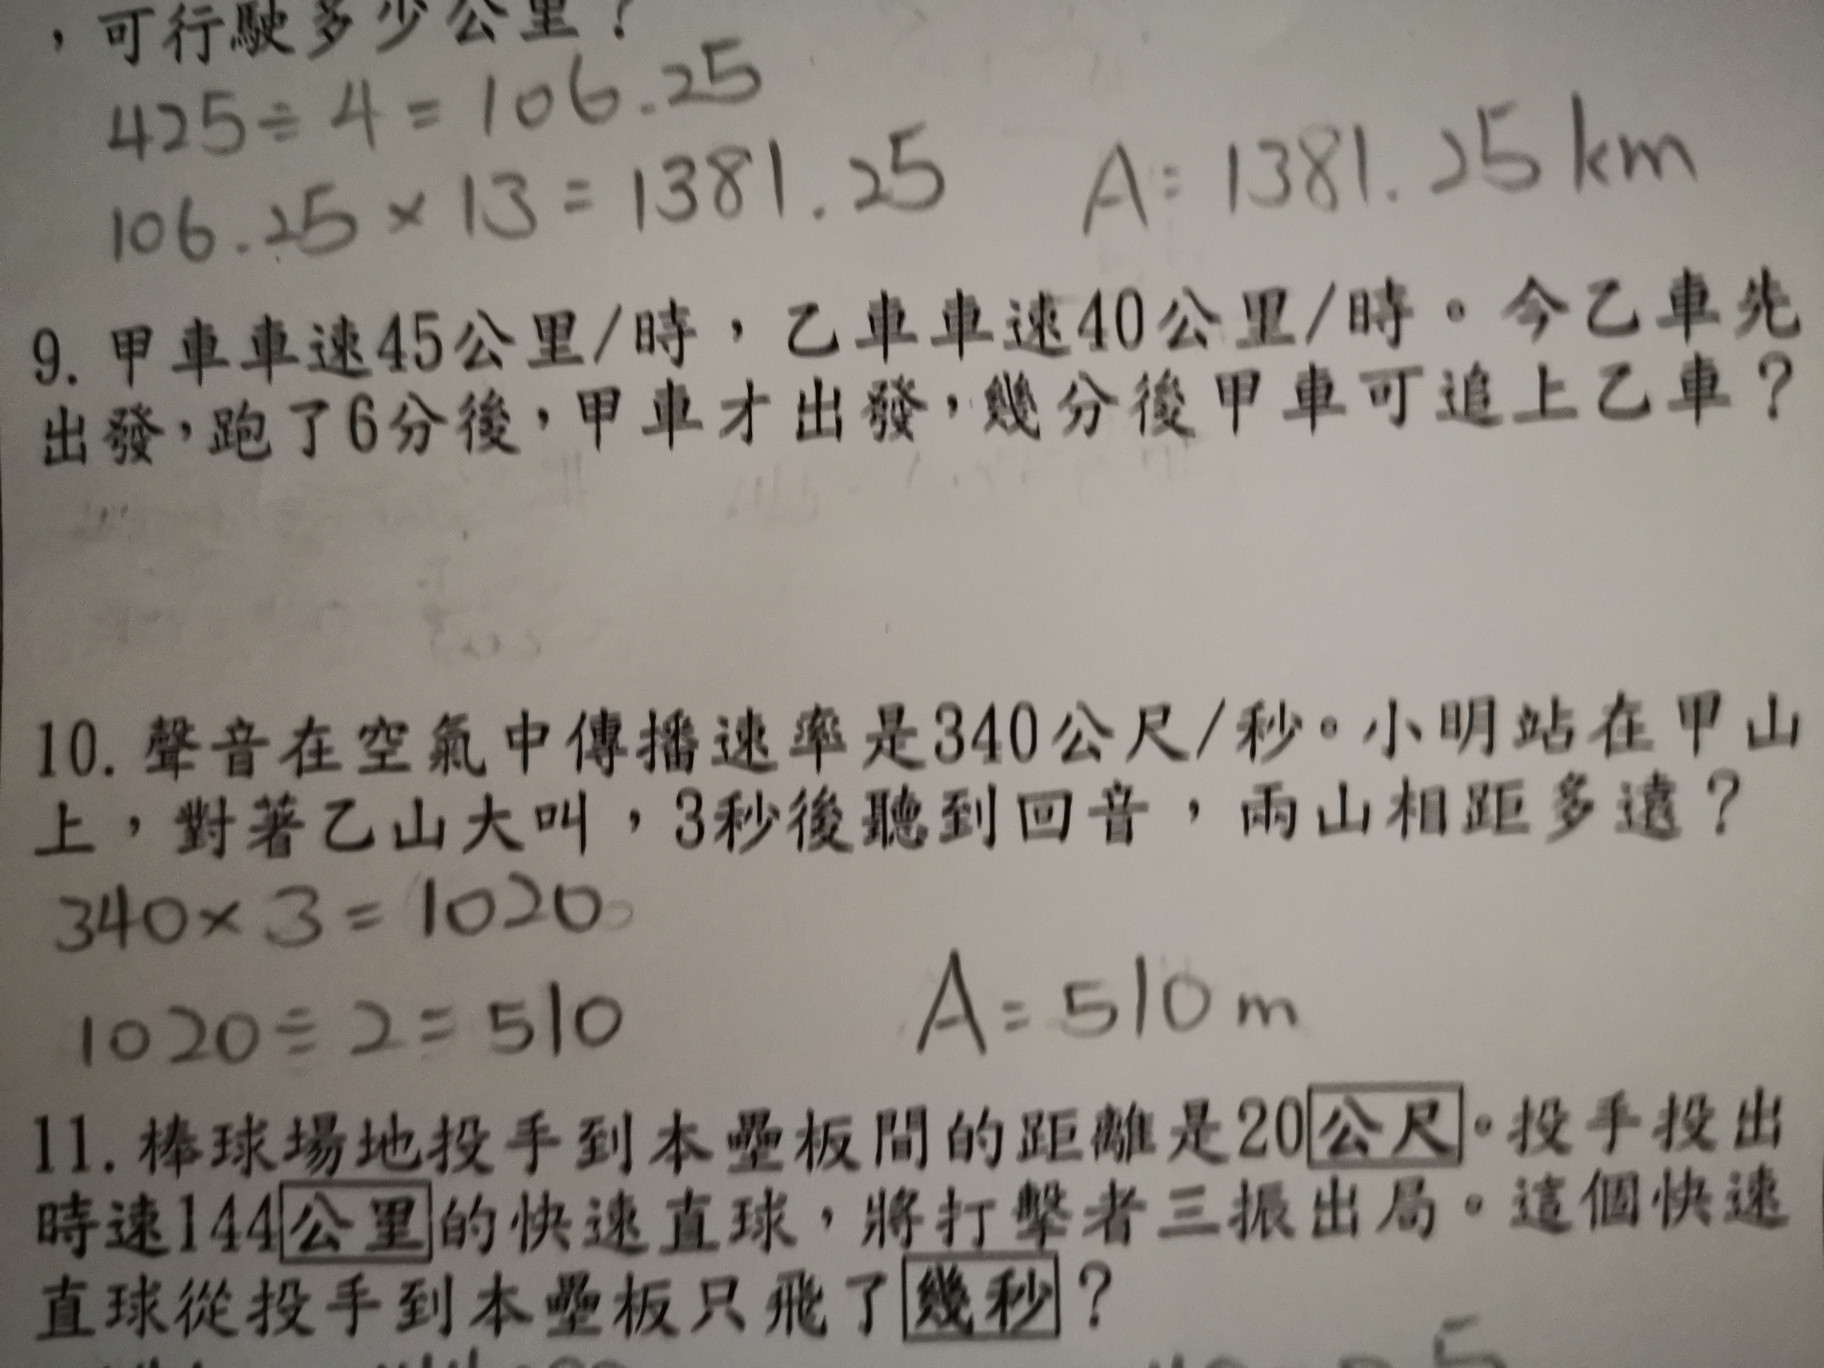 ，可行駛多少公里？
425÷4=106.25
106.25×13=1381.25 A=1381.25km
9. 甲車車速45公里/時，乙車車速40公里/時。今乙車先
出發，跑了6分後，甲車才出發，幾分後甲車可追上乙車？
10. 聲音在空氣中傳播速率是340公尺/秒。小明站在甲山
上，對著乙山大叫，3秒後聽到回音，兩山相距多遠？
340×3=1020
1020÷2=510 A=510m
11. 棒球場地投手到本壘板間的距離是20公尺。投手投出
時速144公里的快速直球，將打擊者三振出局。這個快速
直球從投手到本壘板只飛了幾秒？